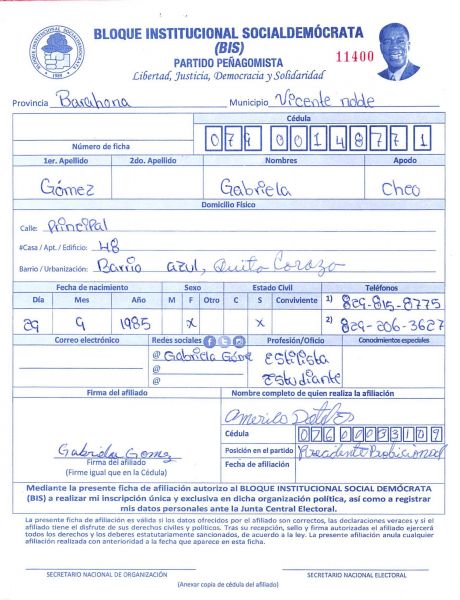 BLOQUE INSTITUCIONAL SOCIALDEMÓCRATA
(BIS)
PARTIDO PEÑAGOMISTA
Libertad, Justicia, Democracia y Solidaridad
11400
Provincia Barahona Municipio Vicente noble
Cédula
Número de ficha 079 0014877 1
1er. Apellido 2do. Apellido Nombres Apodo
Gómez Gabriela Cheo
Domicilio Físico
Calle: Principal
#Casa / Apt. / Edificio: 48
Barrio / Urbanización: Barrio azul, Quito Corazo
Fecha de nacimiento Sexo Estado Civil Teléfonos
Día Mes Año M F Otro C S Conviviente 1) 829-815-8775
29 9 1985 X X 2) 829-206-3627
Correo electrónico Redes sociales Profesión/Oficio Conocimientos especiales
@Gabriela Góme Estilista
@ Estudiante
@
Firma del afiliado Nombre completo de quien realiza la afiliación
Cédula 0760003109
Gabriela Gomez Posición en el partido
Firma del afiliado
(Firme igual que en la Cédula) Fecha de afiliación
Mediante la presente ficha de afiliación autorizo al BLOQUE INSTITUCIONAL SOCIAL DEMÓCRATA
(BIS) a realizar mi inscripción única y exclusiva en dicha organización política, así como a registrar
mis datos personales ante la Junta Central Electoral.
La presente ficha de afiliación es válida si los datos ofrecidos por el afiliado son correctos, las declaraciones veraces y si el
afiliado tiene el disfrute de sus derechos civiles y políticos. Tras su recepción, sello y firma autorizadas el afiliado ejercerá
todos los derechos y los deberes estatutariamente sancionados, de acuerdo a la ley. La presente afiliación anula cualquier
afiliación realizada con anterioridad a la fecha que aparece en esta ficha.
SECRETARIO NACIONAL DE ORGANIZACIÓN SECRETARIO NACIONAL ELECTORAL
(Anexar copia de cédula del afiliado)